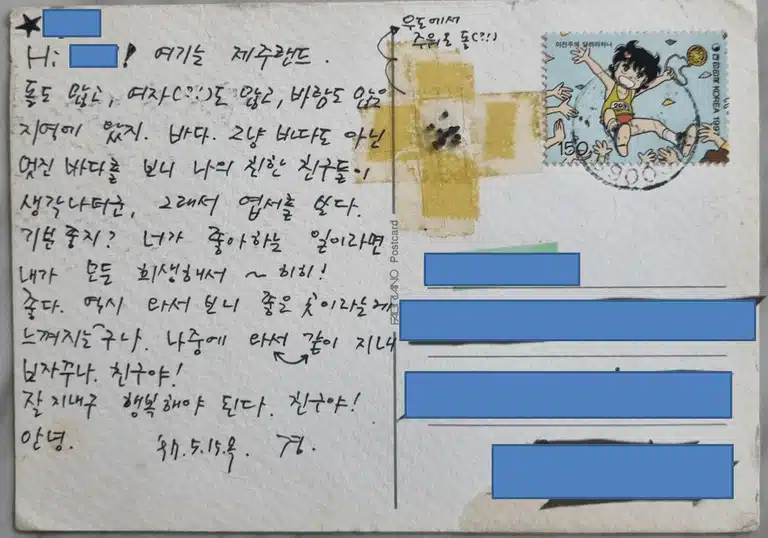 우도에서
주워온 돌(?!)
Hi! 여기는 제주랜드.
돌도 많고, 여자(?!)도 많고, 바람도 많은
지역에 있지. 바다. 그냥 바다도 아닌
멋진 바다를 보니 나의 친한 친구들이
생각나더군, 그래서 엽서를 쓴다.
기분 좋지? 너가 좋아하는 일이라면
내가 모든 희생해서 ~ 히히!
좋다. 역시 와서 보니 좋은 곳이라는게
느껴지는구나. 나중에 와서 같이 지내
보자꾸나. 친구야!
잘 지내구 행복해야 된다. 친구야!
안녕. 97.5.15.목. 경.
이진주의 달려라하니
대한민국 KOREA 1997
150
200
900
FABRIANO Postcard